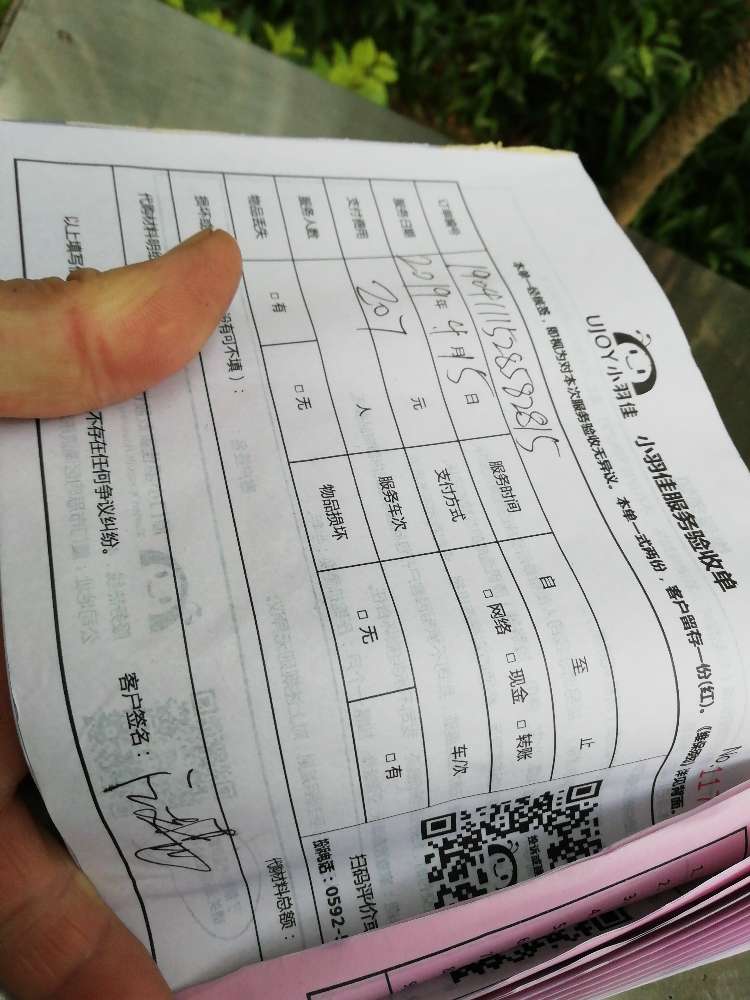 UJOY小羽佳 小羽佳服务验收单
本单一经候签，即视为对本次服务验收无异议。本单一式两份，客户留存一份(红)。
No.117
详见背面。
订单编号 服务时间 自 至 止
服务日期 2019年4月15日 支付方式 □网络 □现金 □转账
支付费用 207 元 服务车次 车次
服务人数 人 物品损坏 □无 □有
物品丢失 □有 □无
份有可不填）：
代购材料明细
代购材料总额：
以上填写
不存在任何争议纠纷。
客户签名：
扫码评价
投诉电话：0592-